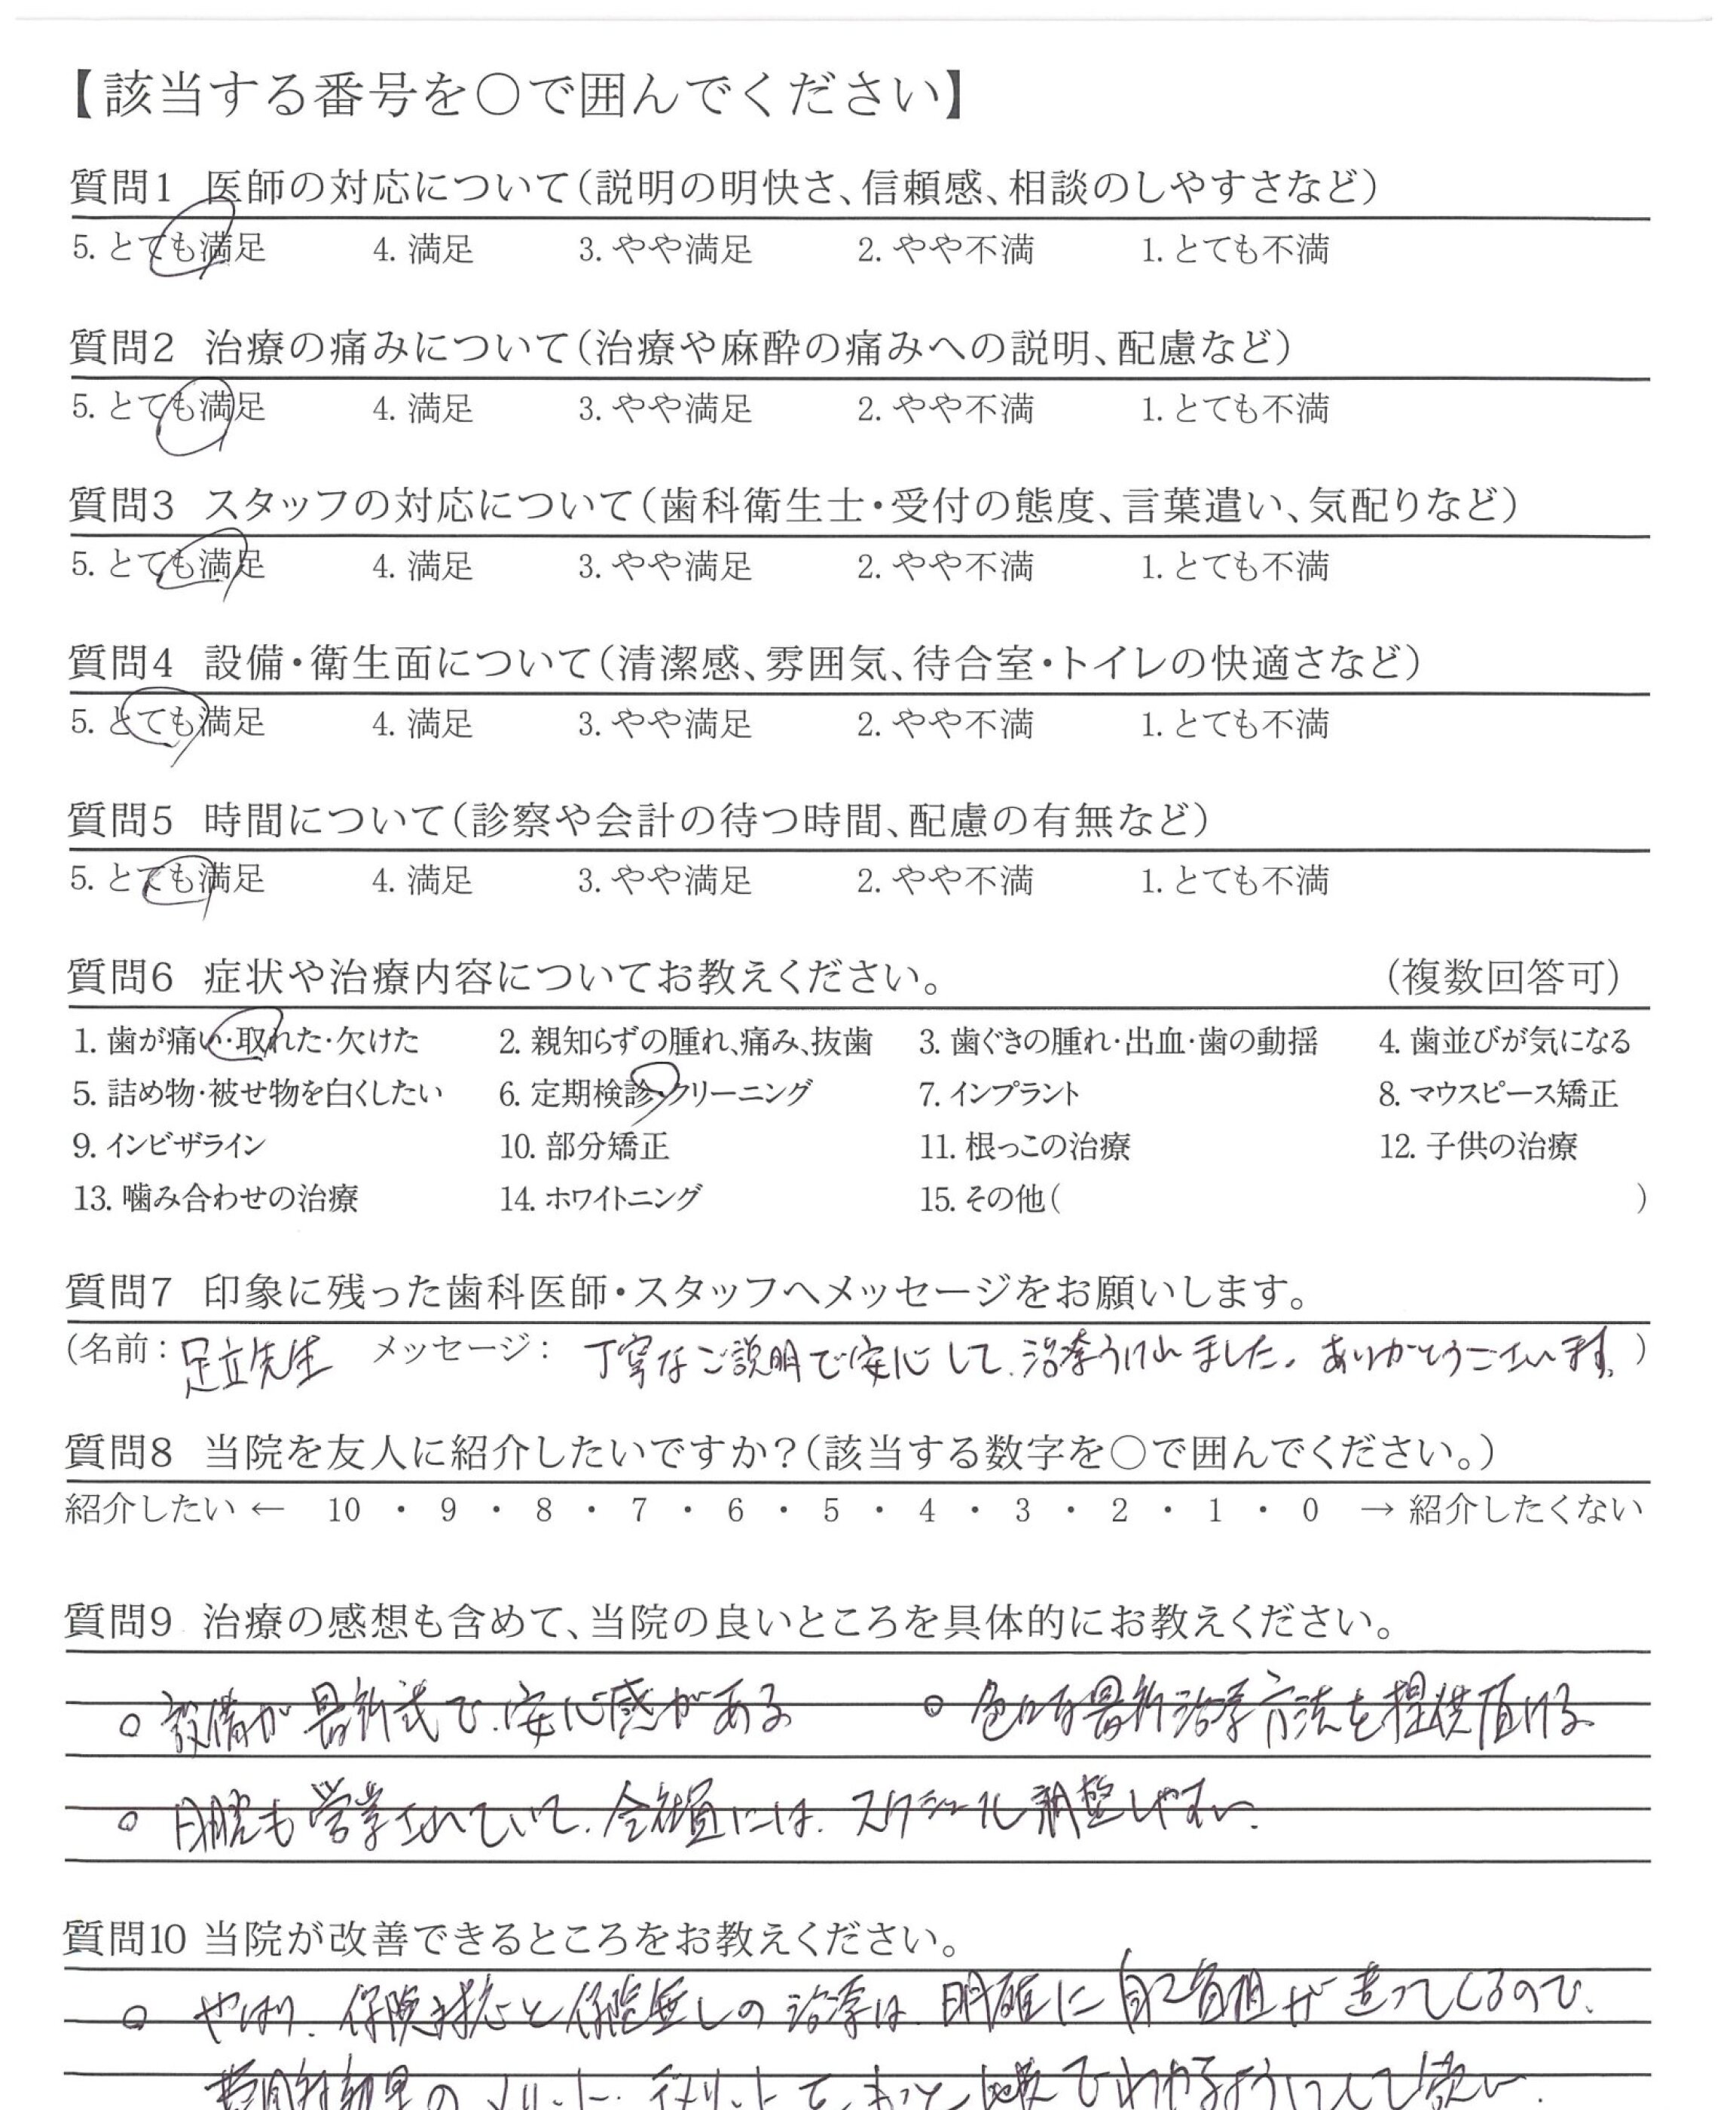 【該当する番号を○で囲んでください】
質問1 医師の対応について(説明の明快さ、信頼感、相談のしやすさなど)
5. とても満足 4. 満足 3. やや満足 2. やや不満 1. とても不満
質問2 治療の痛みについて(治療や麻酔の痛みへの説明、配慮など)
5. とても満足 4. 満足 3. やや満足 2. やや不満 1. とても不満
質問3 スタッフの対応について(歯科衛生士・受付の態度、言葉遣い、気配りなど)
5. とても満足 4. 満足 3. やや満足 2. やや不満 1. とても不満
質問4 設備・衛生面について(清潔感、雰囲気、待合室・トイレの快適さなど)
5. とても満足 4. 満足 3. やや満足 2. やや不満 1. とても不満
質問5 時間について(診察や会計の待つ時間、配慮の有無など)
5. とても満足 4. 満足 3. やや満足 2. やや不満 1. とても不満
質問6 症状や治療内容についてお教えください。 (複数回答可)
1. 歯が痛い・取れた・欠けた 2. 親知らずの腫れ、痛み、抜歯 3. 歯ぐきの腫れ・出血・歯の動揺 4. 歯並びが気になる
5. 詰め物・被せ物を白くしたい 6. 定期検診・クリーニング 7. インプラント 8. マウスピース矯正
9. インビザライン 10. 部分矯正 11. 根っこの治療 12. 子供の治療
13. 噛み合わせの治療 14. ホワイトニング 15. その他( )
質問7 印象に残った歯科医師・スタッフへメッセージをお願いします。
(名前：足立先生 メッセージ： 丁寧なご説明で安心して、治療うけれました。ありがとうございます。)
質問8 当院を友人に紹介したいですか？(該当する数字を○で囲んでください。)
紹介したい ← 10 ・ 9 ・ 8 ・ 7 ・ 6 ・ 5 ・ 4 ・ 3 ・ 2 ・ 1 ・ 0 → 紹介したくない
質問9 治療の感想も含めて、当院の良いところを具体的にお教えください。
○ 設備が最新式で、安心感がある ○ 色々な最新治療方法を提供頂ける
○ 日曜も営業されていて、会社員には、スケジュール調整しやすい。
質問10 当院が改善できるところをお教えください。
○ やはり、保険対応と保険無しの治療は、明確に自己負担が違ってくるので、
費用対効果のメリット、デメリットを、もっと わかるようにして欲しい。